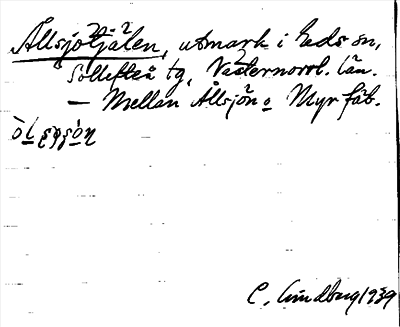 Ållsjötjälen, utmark i Eds sn,
Sollefteå tg, Västernorrl. län.
– Mellan Ållsjön o Myrfäb.
C. Lindberg 1939